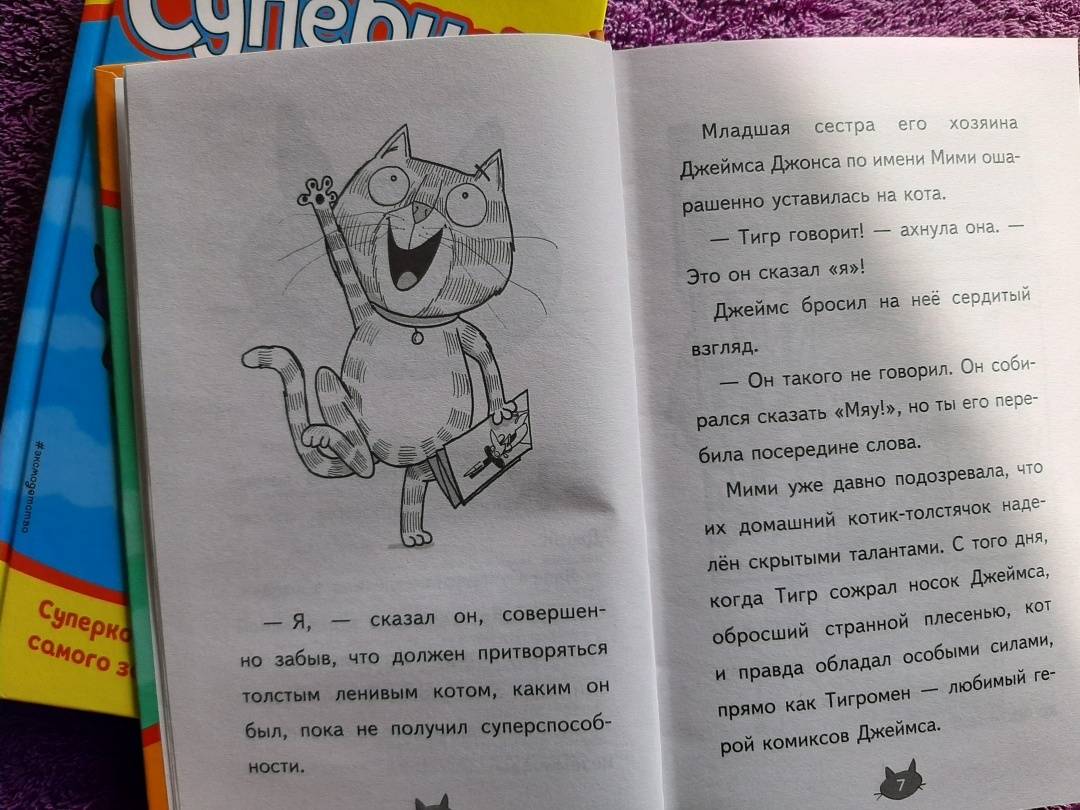 #эксмодетство
Суперко
самого з
— Я, — сказал он, совершен-
но забыв, что должен притворяться
толстым ленивым котом, каким он
был, пока не получил суперспособ-
ности.
Младшая сестра его хозяина
Джеймса Джонса по имени Мими оша-
рашенно уставилась на кота.
— Тигр говорит! — ахнула она. —
Это он сказал «я»!
Джеймс бросил на неё сердитый
взгляд.
— Он такого не говорил. Он соби-
рался сказать «Мяу!», но ты его пере-
била посередине слова.
Мими уже давно подозревала, что
их домашний котик-толстячок наде-
лён скрытыми талантами. С того дня,
когда Тигр сожрал носок Джеймса,
обросший странной плесенью, кот
и правда обладал особыми силами,
прямо как Тигромен — любимый ге-
рой комиксов Джеймса.
7